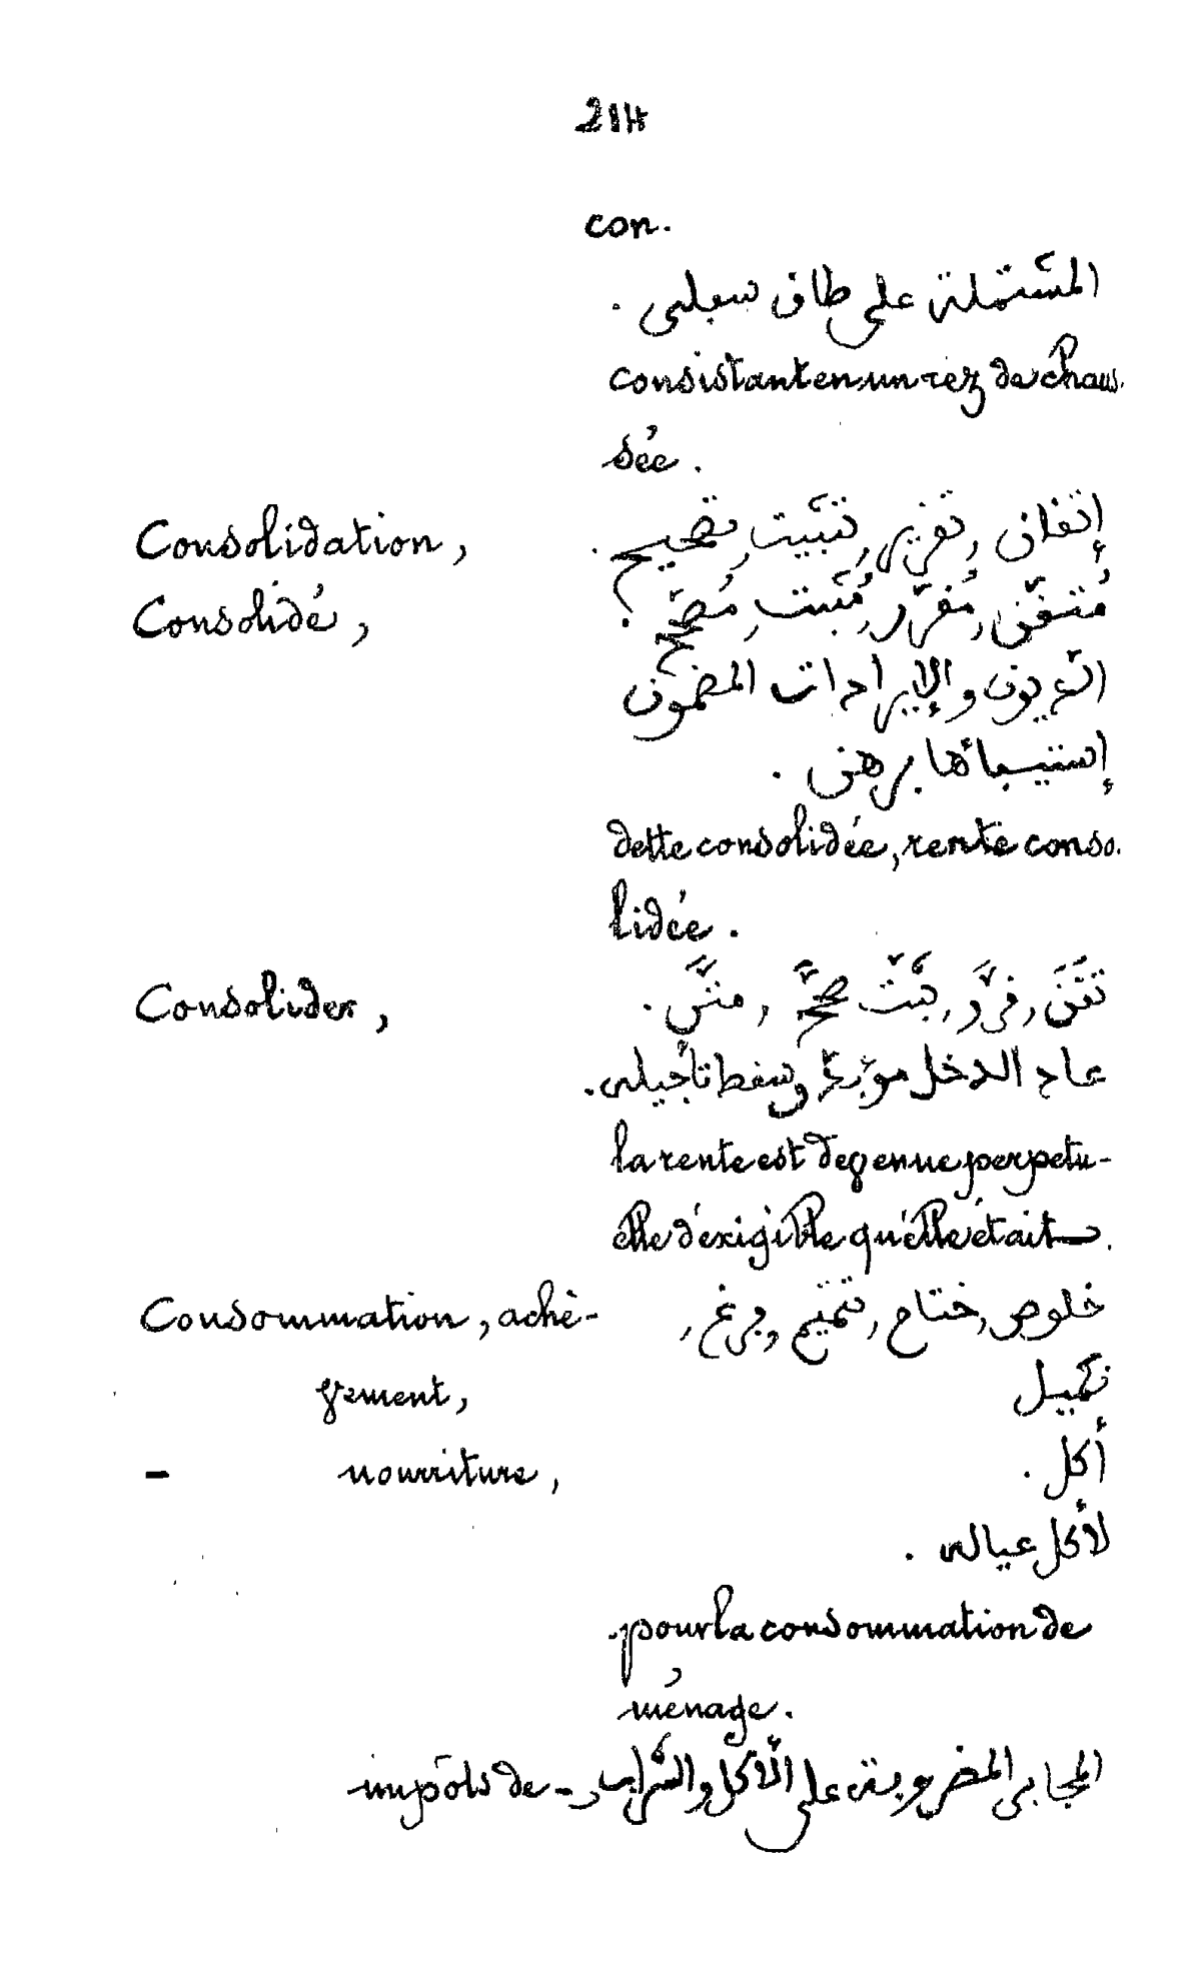 214
con.
المشتملة على طاق سبلى .
consistant en un rez de chaus.
sée .
Consolidation, إتقان, تقرير, تثبيت, تصحيح .
Consolidé, مُتقّن, مُقرّر, مُثبّت, مُصحّح .
الديون والإيرادات المضمون
إستيبائها برهن .
dette consolidée, rente conso.
lidée .
Consolider, تقّن, قرّر, ثبّت صحّح, متّن .
عاد الدخل مؤبدًا وسقط تأجيله .
la rente est devenue perpetu-
elle d'exigible qu'elle était .
Consommation, achè- خلوص, ختام, تتميم, فرغ,
vement, تكميل
- nourriture, أكل .
لأكل عياله .
pour la consommation de
ménage .
impôts de - المجابى المضروبة على الأكل والشراب